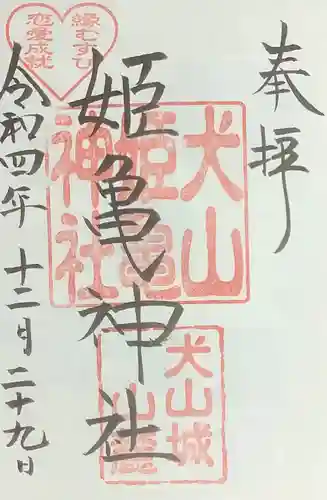 奉拝
姫亀神社
令和四年十二月二十九日
縁むすび
恋愛成就
犬山
姫亀
神社
犬山城